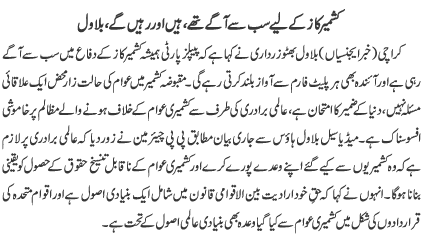 کشمیر کاز کے لیے سب سے آگے تھے، ہیں اور رہیں گے، بلاول
کراچی (خبر ایجنسیاں) بلاول بھٹو زرداری نے کہا ہے کہ پیپلز پارٹی ہمیشہ کشمیر کاز کے دفاع میں سب سے آگے
رہی ہے اور آئندہ بھی ہر پلیٹ فارم سے آواز بلند کرتی رہے گی۔ مقبوضہ کشمیر میں عوام کی حالت زار محض ایک علاقائی
مسئلہ نہیں، دنیا کے ضمیر کا امتحان ہے، عالمی برادری کی طرف سے کشمیری عوام کے خلاف ہونے والے مظالم پر خاموشی
افسوسناک ہے۔ میڈیا سیل بلاول ہاؤس سے جاری بیان مطابق پی پی چیئرمین نے زور دیا کہ عالمی برادری پر لازم
ہے کہ وہ کشمیریوں سے کیے گئے اپنے وعدے پورے کرے اور کشمیری عوام کے ناقابل تنسیخ حقوق کے حصول کو یقینی
بنانا ہوگا۔ انہوں نے کہا کہ حق خود ارادیت بین الاقوامی قانون میں شامل ایک بنیادی اصول ہے اور اقوام متحدہ کی
قراردادوں کی شکل میں کشمیری عوام سے کیا گیا وعدہ بھی بنیادی عالمی اصول کے تحت ہے۔